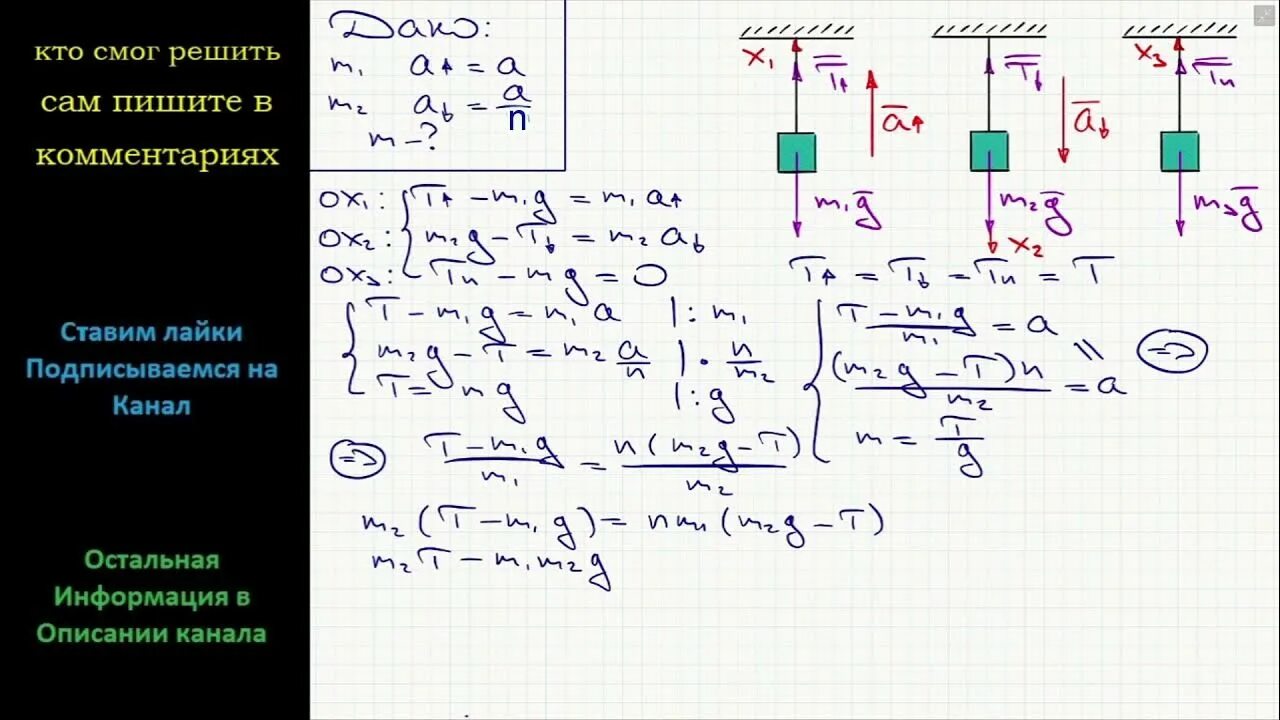 кто смог решить
сам пишите в
комментариях
Ставим лайки
Подписываемся на
Канал
Остальная
Информация в
Описании канала
Дано:
m₁ a↑ = a
m₂ a↓ = a/n
m – ?
x₁ T̅↑ a̅↑ m₁g̅
T̅↓ a̅↓ m₂g̅ x₂
x₃ T̅п g̅
ox₁: T↑ – m₁g = m₁a↑
ox₂: m₂g – T↓ = m₂a↓
ox₃: Tп – mg = 0
T↑ = T↓ = Tп = T
T – m₁g = m₁a |: m₁
m₂g – T = m₂ a/n | · n/m₂
T = mg |: g
(T – m₁g)/m₁ = a
(m₂g – T)n/m₂ = a
m = T/g
=>
=> (T – m₁g)/m₁ = n(m₂g – T)/m₂
m₂(T – m₁g) = nm₁(m₂g – T)
m₂T – m₁m₂g